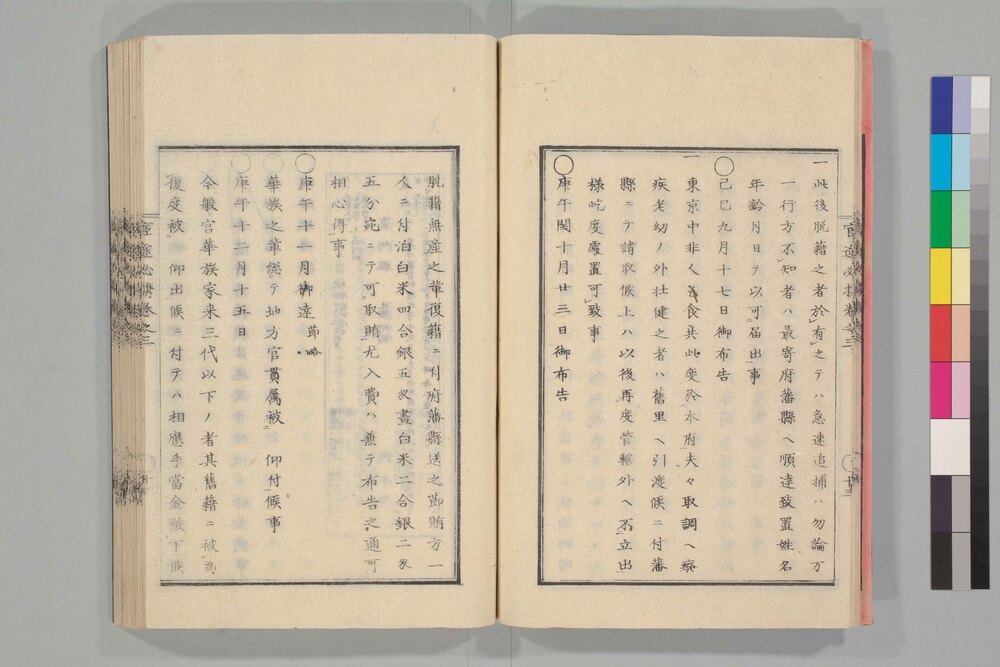 一此後脱籍之者於有之テハ急速追捕ハ勿論万
一行方不知者ハ最寄府藩縣ヘ順達致置姓名
年齡月日ヲ以可届出事
◯己巳九月十七日御布告
一東京中非人乞食共此度於本府夫々取調ヘ癈
疾老幼ノ外壮健之者ハ舊里ヘ引渡候ニ付藩
縣ニテ請取候上ハ以後再度管轄外ヘ不立出
様屹度處置可致事
◯庚午閏十月廿三日御布告
脱籍無産之輩復籍ニ付府藩縣送之節賄方一
人ニ付泊白米四合銀五匁晝白米二合銀二匁
五分宛ニテ可取賄尤入費ハ兼テ布告之通可
相心得事
◯庚午十一月御達 節略
◯華族之輩總テ地方官貫属被仰付候事
◯庚午十二月十五日
今般宮華族家来三代以下ノ者其舊籍ニ被為
復度被仰出候ニ付テハ相應手當金被下候